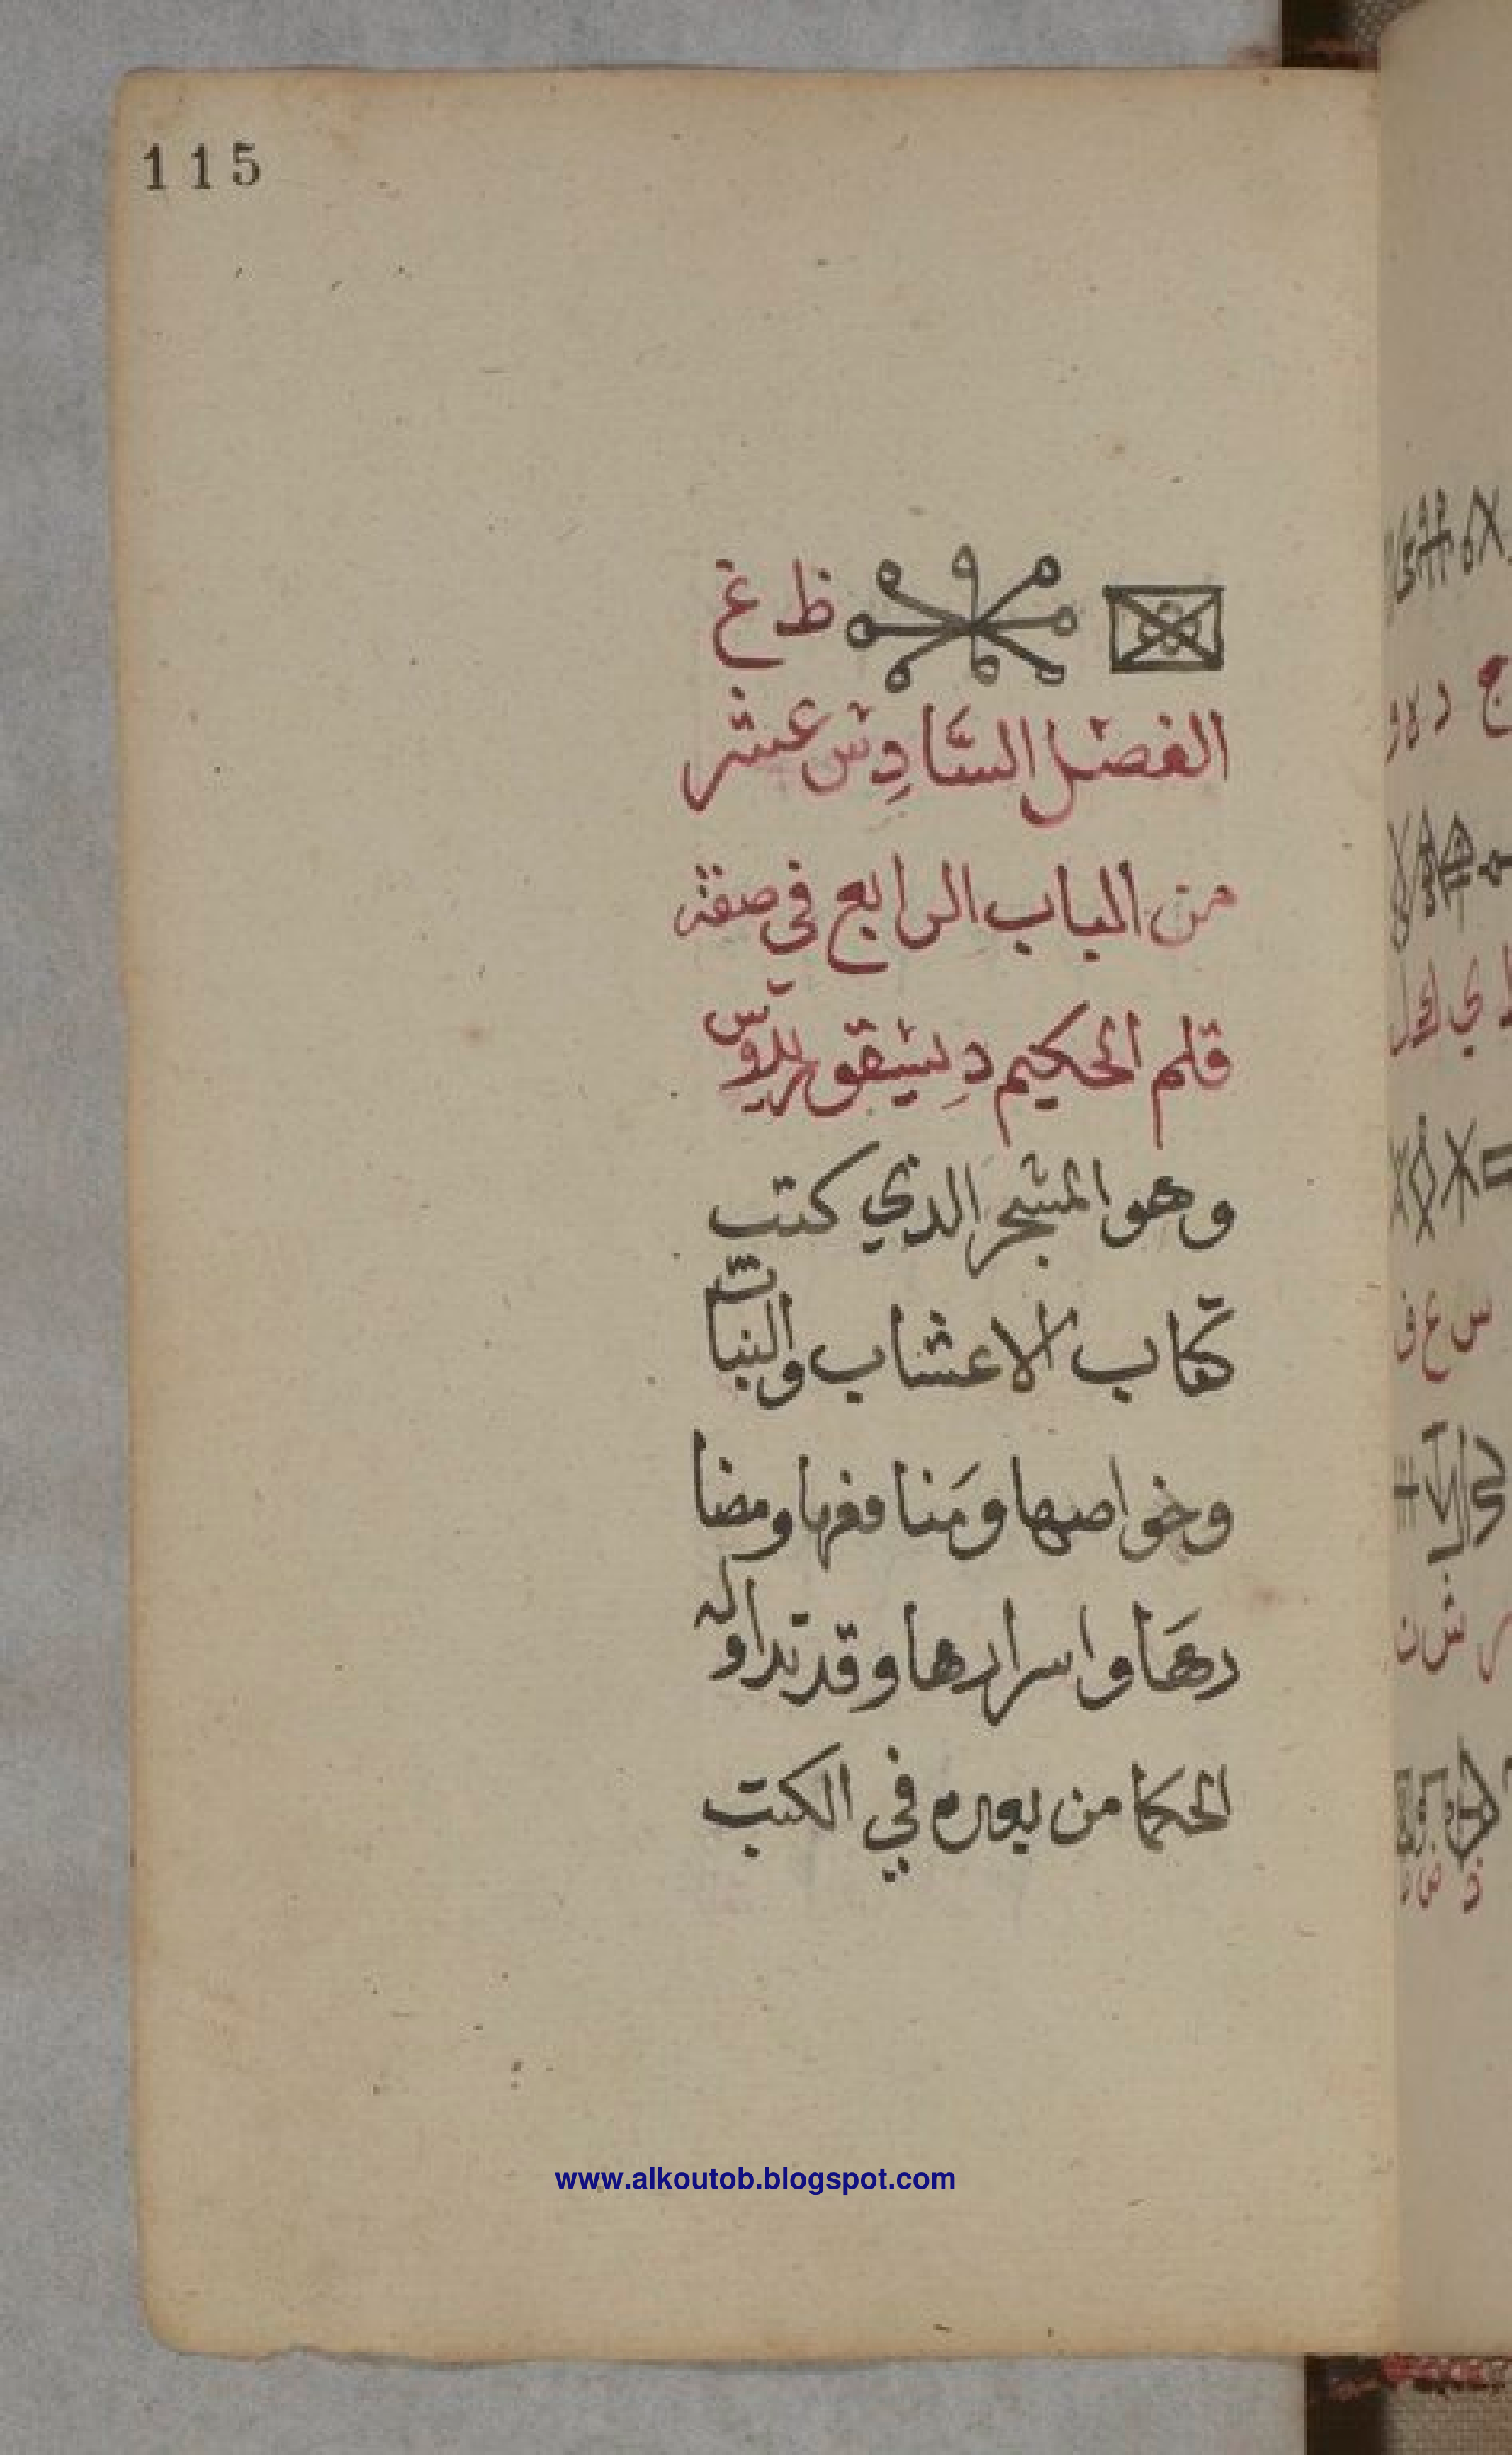 115
ظ غ
الفصل السادِس عشر
من الباب الرابع في صفة
قلم الحكيم دِيسقوريدوس
وهو المشجر الذي كتب
كتاب الاعشاب والنبات
وخواصها ومَنافعها ومضا
رهَا واسرارها وقد تداوله
الحكما من بعده في الكتب
www.alkoutob.blogspot.com